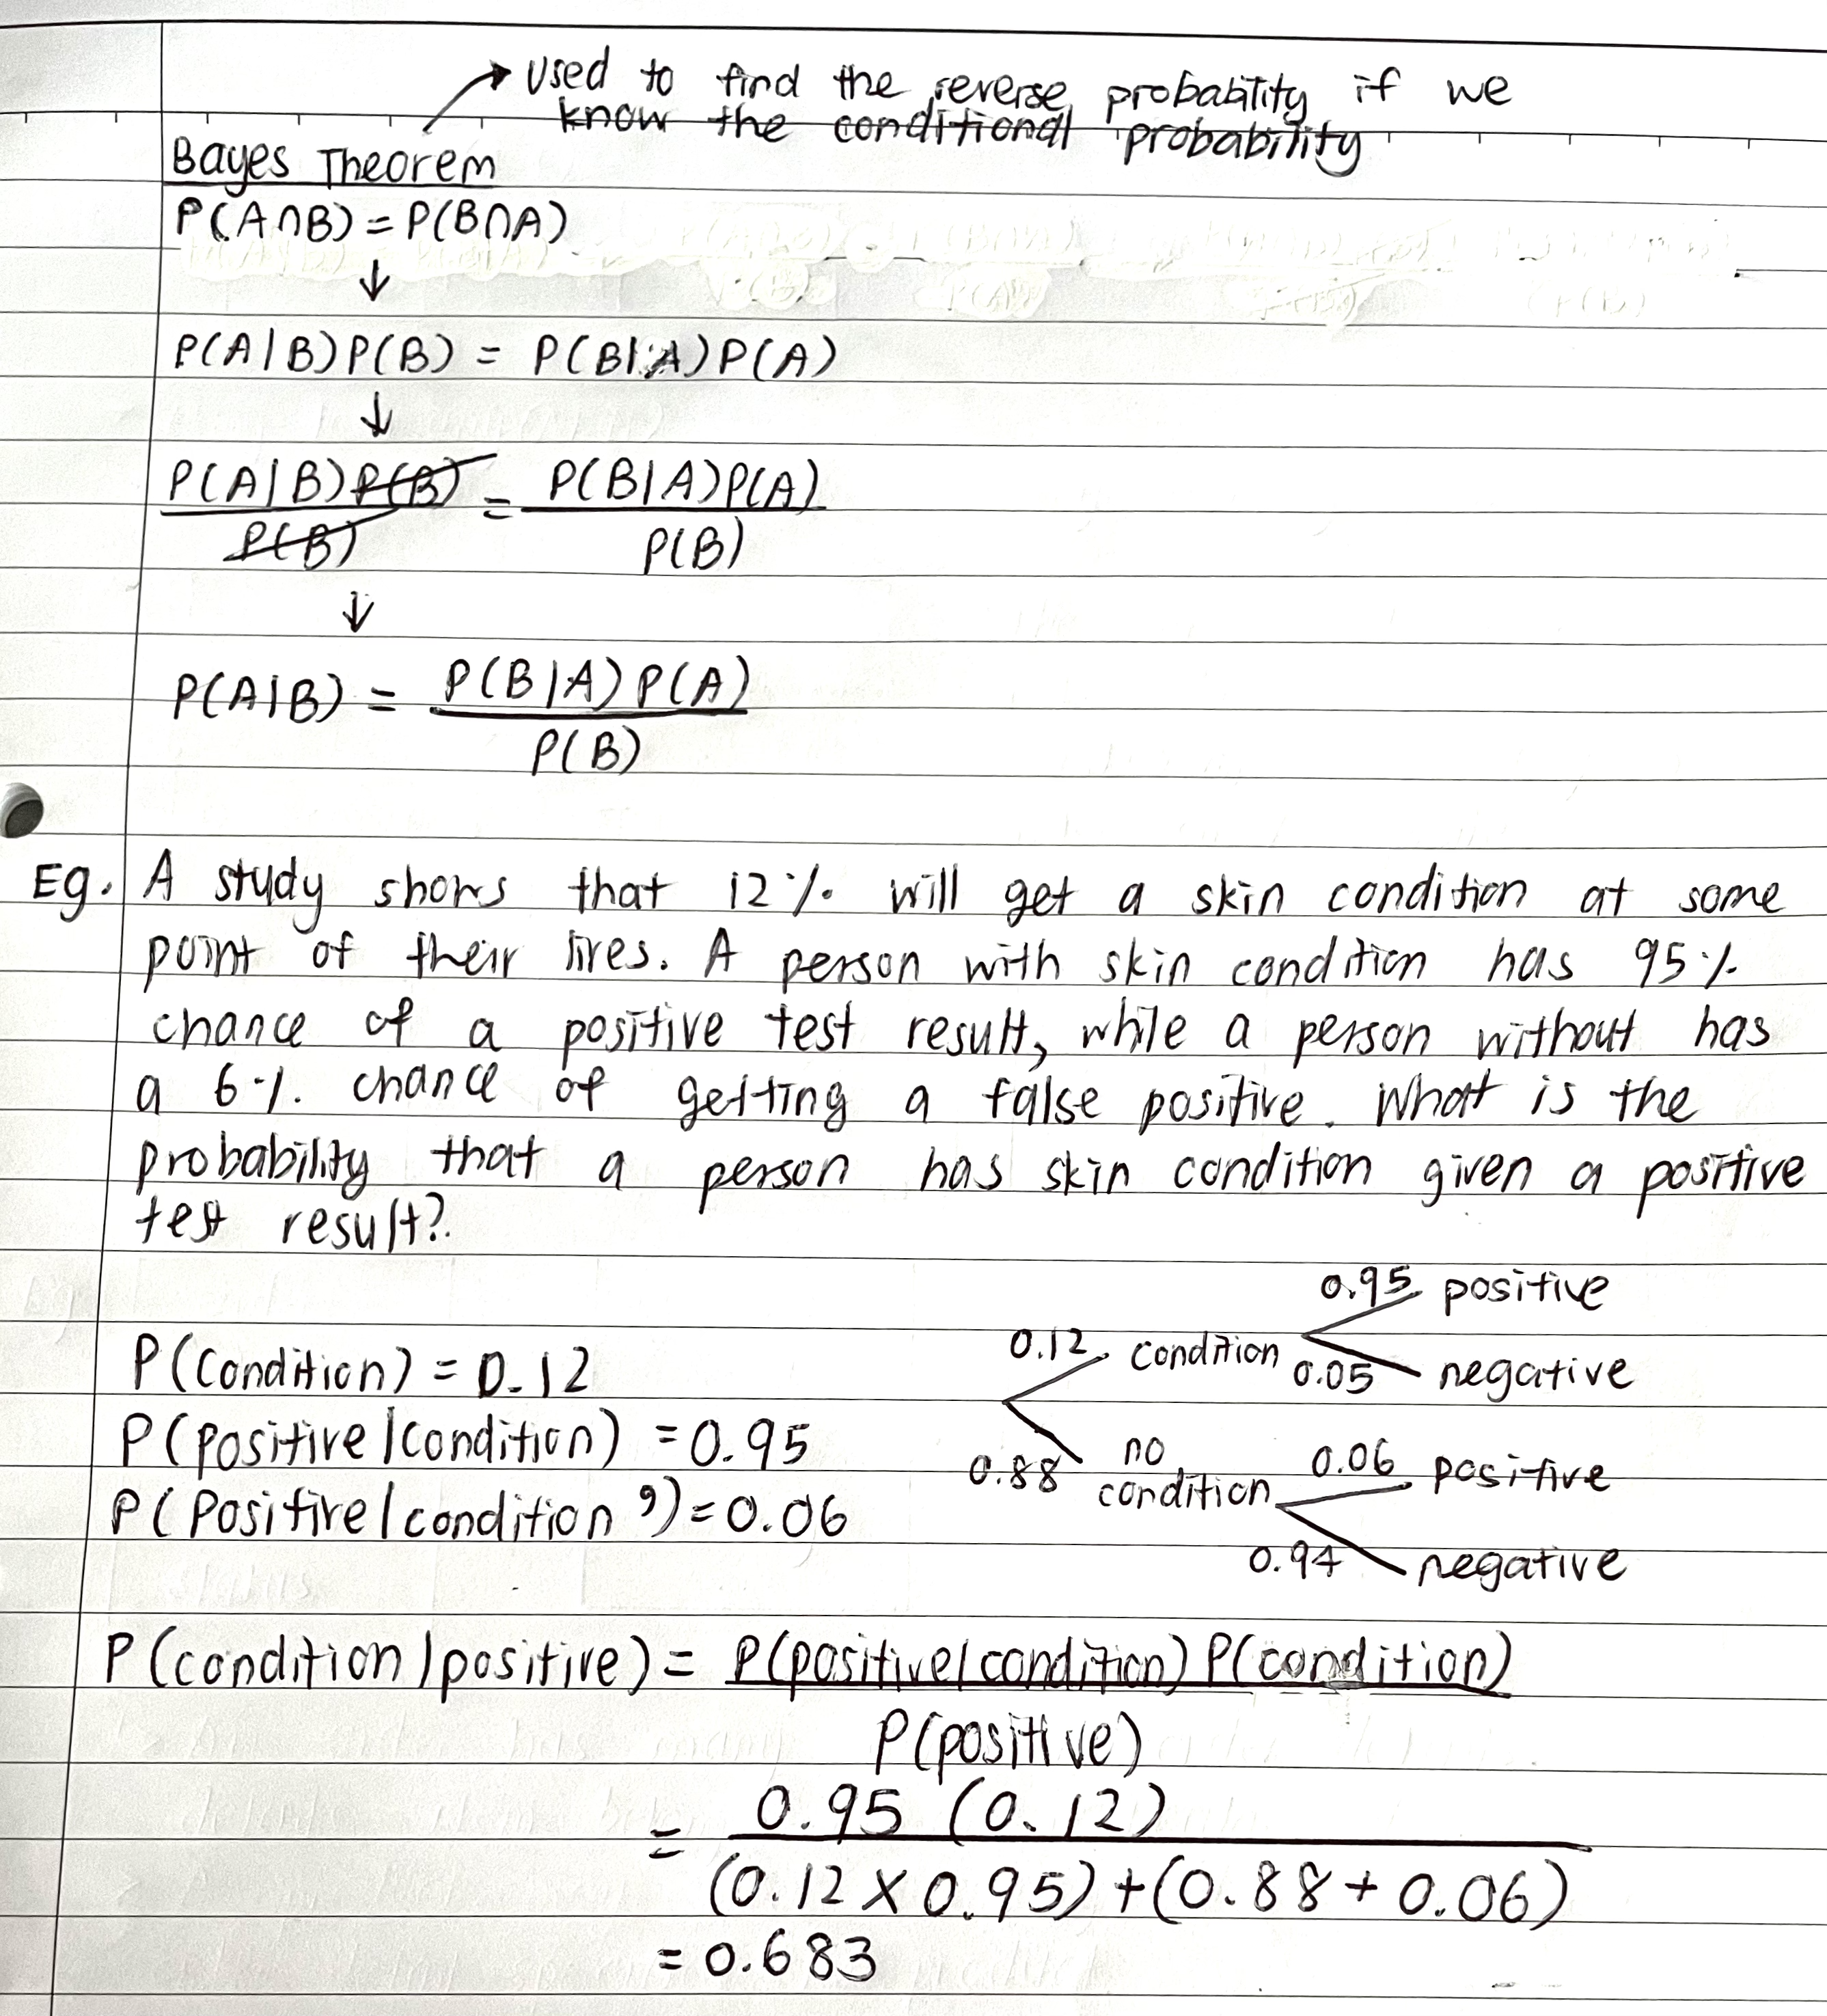 Used to find the reverse probability if we
know the conditional probability
Bayes Theorem
P(A∩B) = P(B∩A)
↓
P(A|B)P(B) = P(B|A)P(A)
↓
P(A|B)P(B) = P(B|A)P(A)
P(B) P(B)
↓
P(A|B) = P(B|A) P(A)
P(B)
Eg. A study shows that 12% will get a skin condition at some
point of their lives. A person with skin condition has 95%
chance of a positive test result, while a person without has
a 6%. chance of getting a false positive. What is the
probability that a person has skin condition given a positive
test result?
0.95 positive
0.12 condition
0.05 negative
P(condition) = 0.12
P(positive|condition) = 0.95
0.88 no condition
0.06 positive
P(Positive|condition ') = 0.06
0.94 negative
P(condition|positive) = P(positive|condition) P(condition)
P(positive)
= 0.95 (0.12)
(0.12 × 0.95) + (0.88 + 0.06)
= 0.683